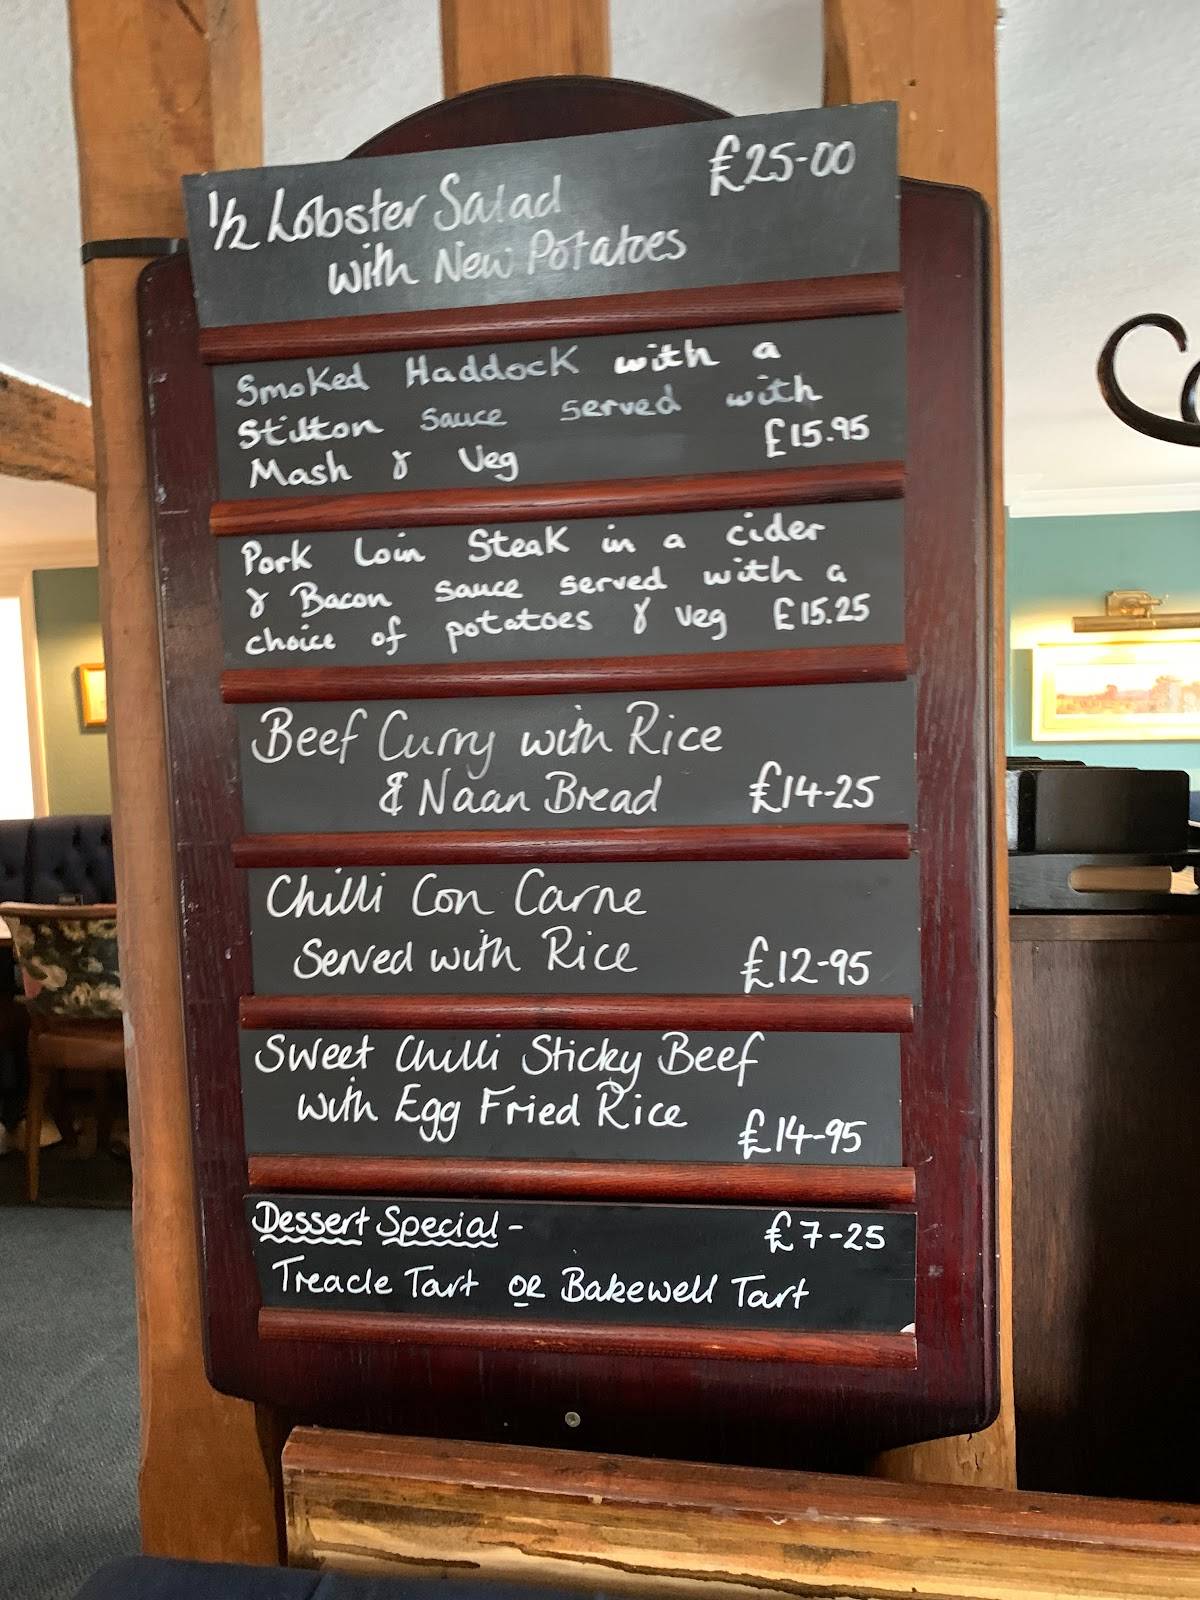 ½ Lobster Salad £25-00
with New Potatoes
Smoked Haddock with a
Stilton sauce served with
Mash & Veg £15.95
Pork Loin Steak in a cider
& Bacon sauce served with a
choice of potatoes & Veg £15.25
Beef Curry with Rice
& Naan Bread £14-25
Chilli Con Carne
Served with Rice £12-95
Sweet Chilli Sticky Beef
with Egg Fried Rice £14-95
Dessert Special - £7-25
Treacle Tart OR Bakewell Tart